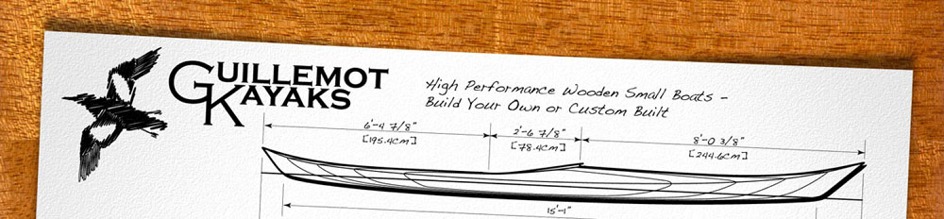 GUILLEMOT
KAYAKS
High Performance Wooden Small Boats -
Build Your Own or Custom Built
6'-4 7/8"
[195.4cm]
2'-6 7/8"
[78.4cm]
8'-0 3/8"
[244.6cm]
15'-1"